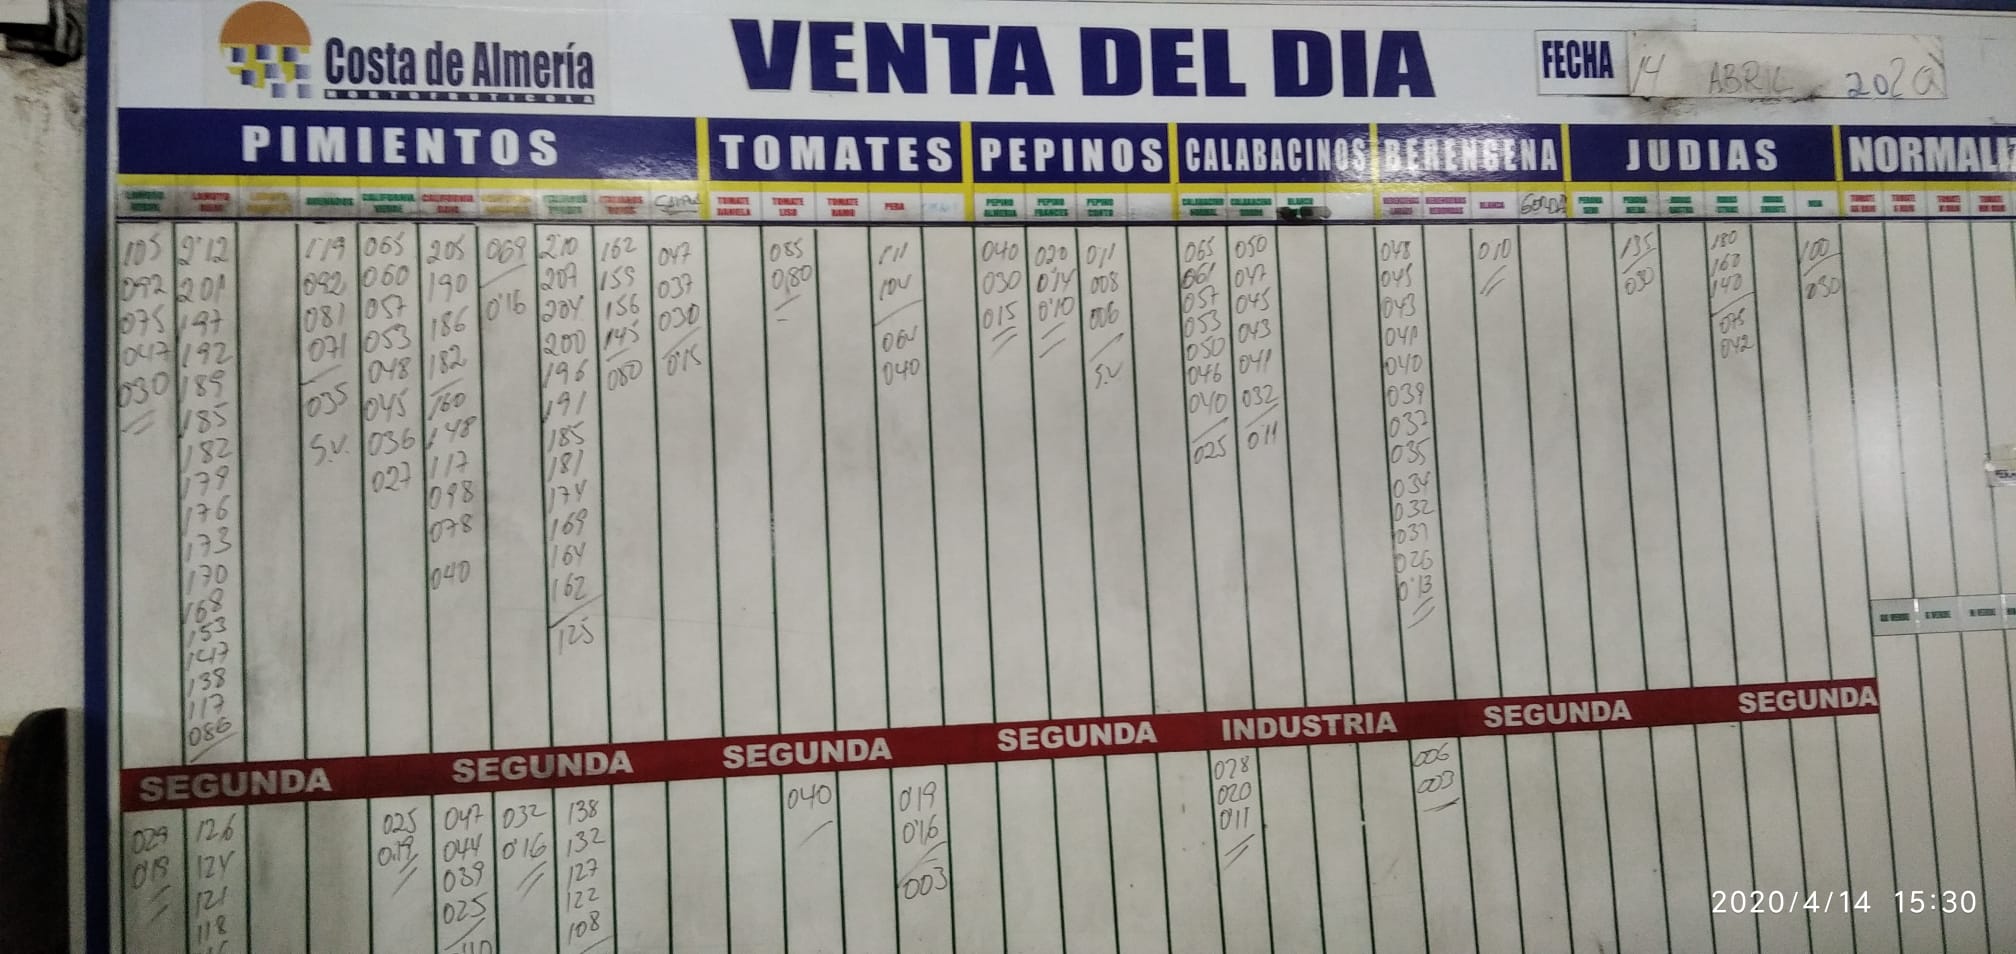 Costa de Almería
HORTOFRUTICOLA
VENTA DEL DIA
FECHA 14 ABRIL 2020
PIMIENTOS TOMATES PEPINOS CALABACINOS BERENGENA JUDIAS NORMALIZ
CALIFORNIA CALIFORNIA TOMATE DANIELA TOMATE LISO TOMATE RAMO PERA PEPINO ALMERIA PEPINO FRANCES PEPINO CORTO BLANCA BLANCA GORDA
105 2'12 119 065 205 069 210 162 047 085 111 040 020 011 065 050 048 010 135 180 100
092 201 092 060 190 0'16 207 159 037 080 100 030 0'14 008 061 047 045 030 160 050
075 197 081 057 186 204 156 030 060 015 0'10 006 057 045 043 140
047 192 071 053 182 200 145 0'15 040 S.V. 053 043 041 075
030 189 035 048 160 196 080 050 041 040 042
185 S.V. 045 148 191 046 032 039
182 036 117 185 040 011 037
179 027 098 181 025 035
176 078 174 034
173 040 169 032
170 164 031
168 162 026
153 125 0'13
147
138
117
086
SEGUNDA SEGUNDA SEGUNDA SEGUNDA INDUSTRIA SEGUNDA SEGUNDA
029 126 025 047 032 138 040 0'19 028 006
0'19 124 0'19 044 0'16 132 0'16 020 003
121 039 127 003 0'11
118 025 122
108
2020/4/14 15:30